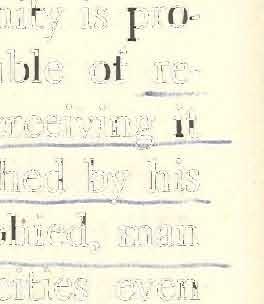 nity is pro-
ble of re-
rceiving it
hed by his
plied, man
cities even